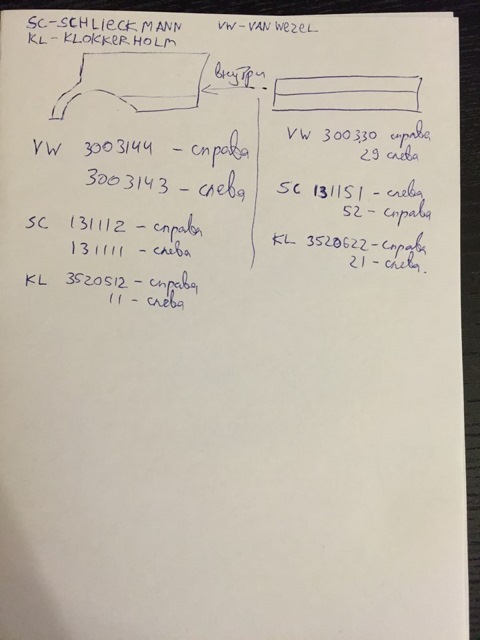 SC-SCHLIECKMANN
VW-VAN WEZEL
KL-KLOKKERHOLM
внутри
VW 3003144 - справа
3003143 - слева
SC 131112 - справа
131111 - слева
KL 3520512 - справа
11 - слева
VW 300330 справа
29 слева
SC 131151 - слева
52 - справа
KL 3520622 - справа
21 - слева.